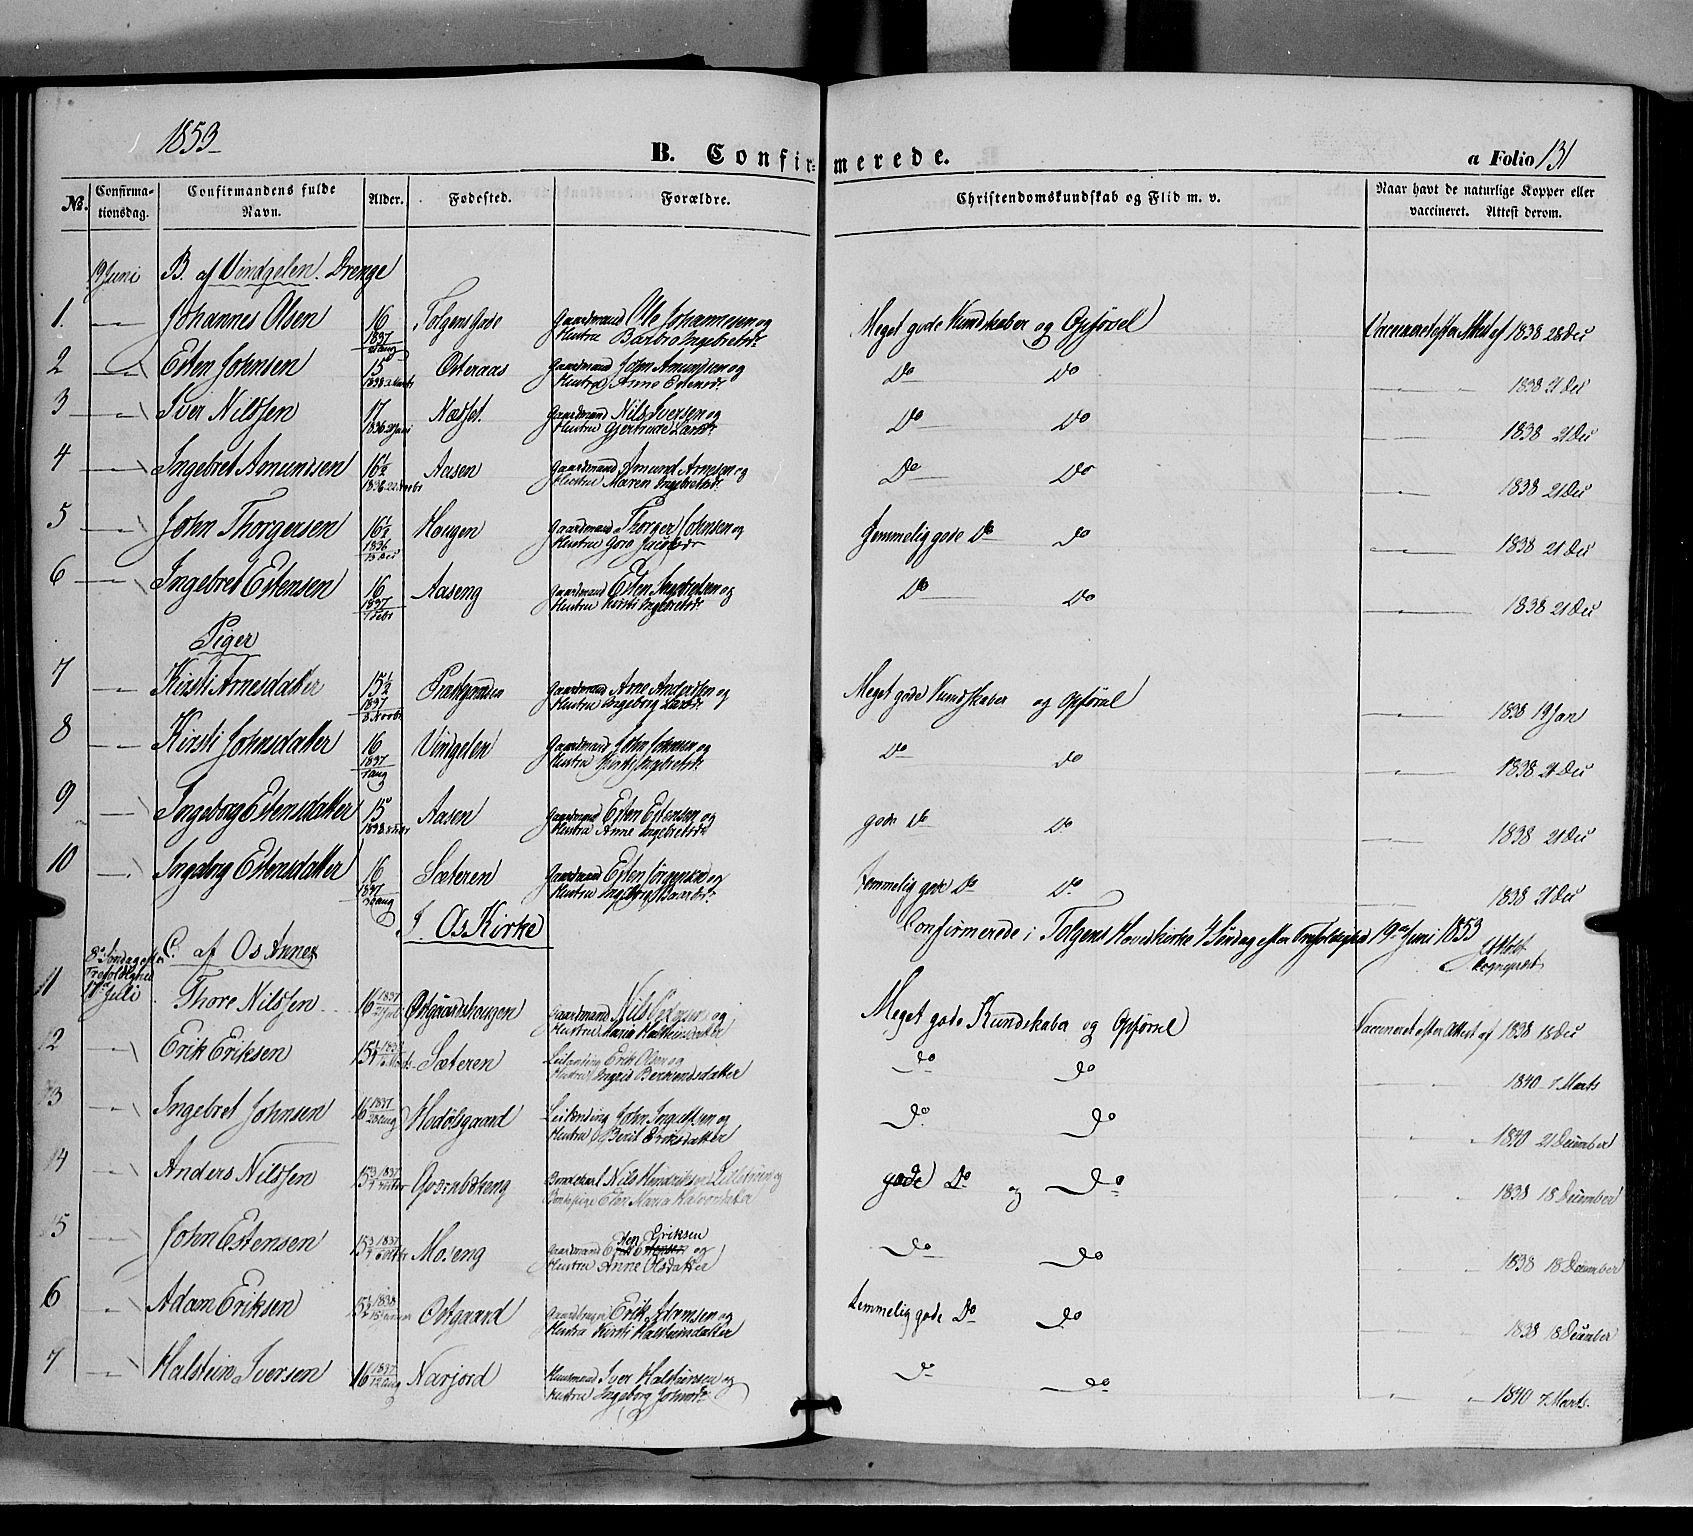 1853
B. Confirmerede.
a Folio 131
№. Confirmationsdag. Confirmandens fulde Navn. Alder. Fødested. Forældre. Christendomskundskab og Flid m. v. Naar havt de naturlige Kopper eller vaccineret. Attest derom.
19 Juni B. af Vindgelen. Drenge
1. Johannes Olsen 16 1837 Gaardmand Ole Johannesen og Meget gode Kundskaber og Opførsel 1838 28 Dec
Hustru Barbro Ingebretsdr
2 Esten Johnsen 15 1838 Østeraas Gaardmand John Amundsen og Do Do 1838 21 Dec
Hustru Anne Estensdr
3 Iver Nilssen 17 1836 Gaardmand Nils Iversen og Do Do 1838 21 Dec
Hustru Gjertrude Larsdr
4 Ingebret Amundsen 16½ 1836 Aasen Gaardmand Amund Arnesen og Do Do 1838 21 Dec
Hustru Maren Ingebretsdr
5 John Thorgersen 16½ 1836 Haugen Gaardmand Thorger Johnsen og Temmelig gode Do Do 1838 21 Dec
Hustru Goro
6 Ingebret Estensen 16 1837 Aaseng Gaardmand Esten Ingebretsen og Do Do 1838 21 Dec
Hustru Kirsti Ingebretsdr
Piger
7 Kirsti Arnesdatter 15½ 1837 Gaardmand Arne Andersen og Meget gode Kundskaber og Opførsel 1838 19 Jan
Hustru Ingeborg Larsdr
8 Kirsti Johnsdatter 16 1837 1 Aug Vingelen Gaardmand John Johnsen og Do Do 1838 21 Dec
Hustru Ingebretsdr
9 Ingeborg Estensdatter 15 1838 Aasen Gaardmand Esten Estensen og gode Do Do 1838 21 Dec
Hustru Anne Ingebretsdr
10 Ingeborg Estensdatter 16 1837 Sæteren Gaardmand Esten og temmelig gode Do Do 1838 21 Dec
Hustru Ingeborg Baardsdr
I Os Kirke
Confirmerede i Tolgens Hovedkirke 4 Søndag efter Trefoldighed 19de Juni 1853
Sognepræst
8de Søndag efter Trefoldighed 17de Juli C. af Os Annex
11 Thore Nilssen 16 1837 Østgaardshaugen Gaardmand Nils og Meget gode Kundskaber og Opførsel Vaccineret efter Attest af 1838 18 Dec
Hustru Maria Halsteinsdatter
12 Erik Eriksen 15 Sæteren Leilending Erik Olsen og Do Do 1840 7 Marts
Hustru Ingrid Berhendsdatter
13 Ingebret Johnsen 16 1837 28 Aug Hodølsgaard Leilending John Ingebretsen og Do Do 1840 21 December
Hustru Berit Eriksdatter
14 Anders Nilssen 15¾ 1837 Qværnbækeng Nils Hendriksen og gode Do og Do 1838 18 December
Maria Halvorsdatter
15 John Estensen 15¾ 1837 Moseng Gaardmand Esten Eriksen og Do Do 1838 18 December
Hustru Anne Olsdatter
16 Adam Eriksen 15½ 1838 Østgaard Gaardbruger Erik Adamsen og temmelig gode Do Do 1838 18 December
Hustru Kirsti Halsteinsdatter
17 Halstein Iversen 16 1837 12 Aug Narjord Huusmand Iver Halsteinsen og Do Do 1840 7 Marts.
Hustru Ingeborg Johnsdr